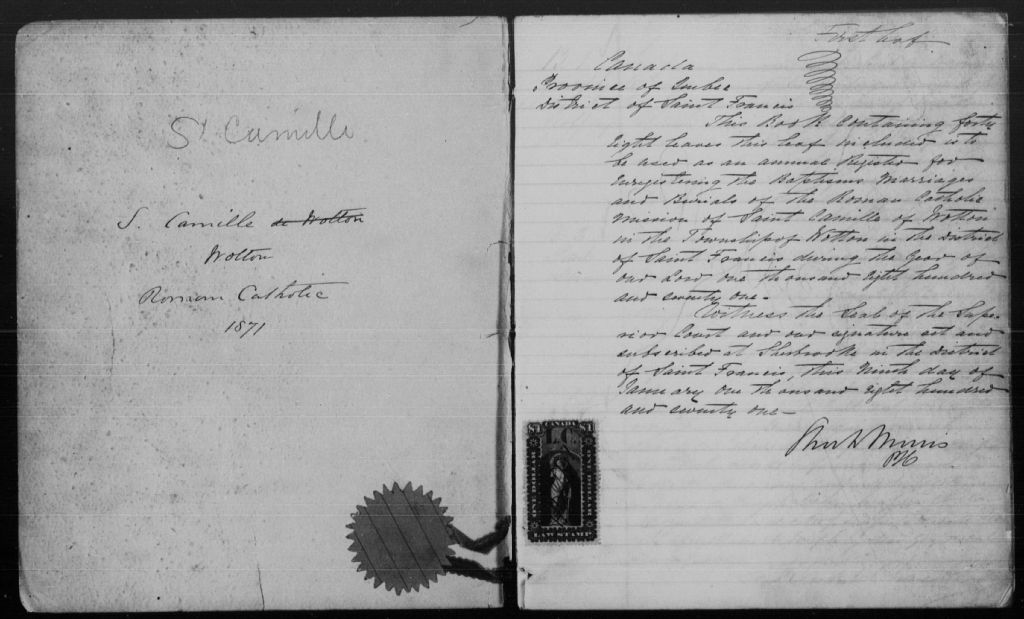 St Camille
S. Camille de Wotton
Wotton
Roman Catholic
1871
First leaf
Canada
Province of Quebec
District of Saint Francis
This Book Containing forty
eight leaves this leaf included is to
be used as an annual Register for
Enregistering the Baptisms Marriages
and Burials of the Roman Catholic
Mission of Saint Camille of Wotton
in the Township of Wotton in the District
of Saint Francis during the Year of
our Lord one thousand eight hundred
and seventy one.
Witness the Seal of the Supe-
rior Court and our signature set and
subscribed at Sherbrooke in the District
of Saint Francis, this Ninth day of
January one thousand eight hundred
and seventy one—
Short & Morris
PSC
CANADA
$1 $1
ONE DOLLAR
ONE DOLLAR
LAW STAMP